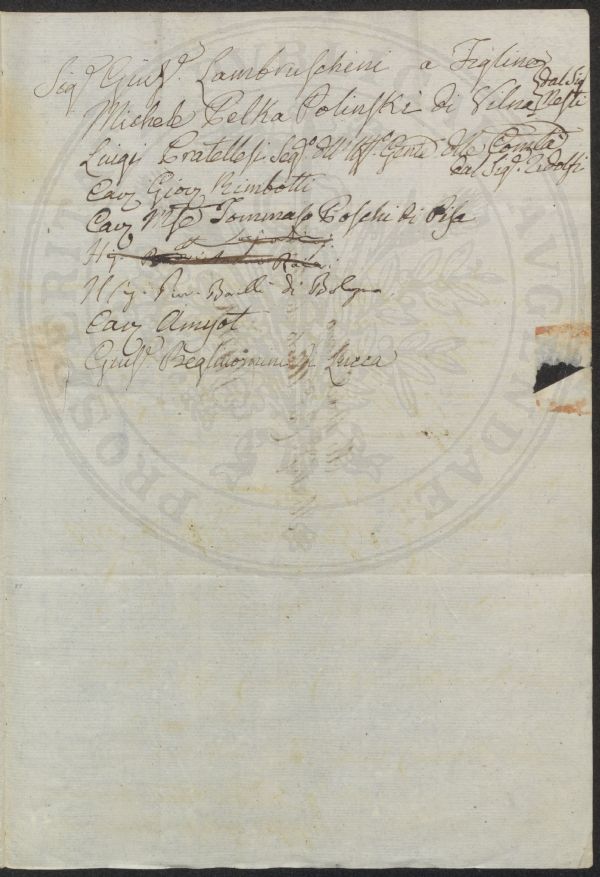 Sig.r Gius.e Lambruschini a Figline
Michele Pelka Polinski di Vilna dal Sig.
Nesti
Luigi Pratellesi Seg.o dell' Uff.o Gen.le delle Comità
dal Sig.r Ridolfi
Cav. Giov. Rimbotti
Cav. Tommaso Poschi di Pisa
Il Sig. di Bologna
Cav. Amyot
Gius.e di Lucca
PROSPERITATI AUGENDAE